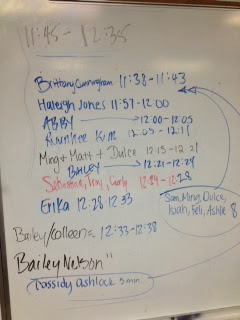 11:45 - 12:35
Brittany Cunningham 11:38-11:43
Haleigh Jones 11:57-12:00
ABBY 12:00-12:05
Kim 12:05-12:11
Ming + Matt + Dulce 12:15-12:21
BAILEY 12:21-12:24
Sebastian, Tony, Carly 12:24-12:28
Erika 12:28 12:33
Sam, Ming, Dulce,
Feli, Ashle 8
Bailey/Colleen= 12:33-12:38
Bailey Nelson"
Cassidy Ashlock 5 min